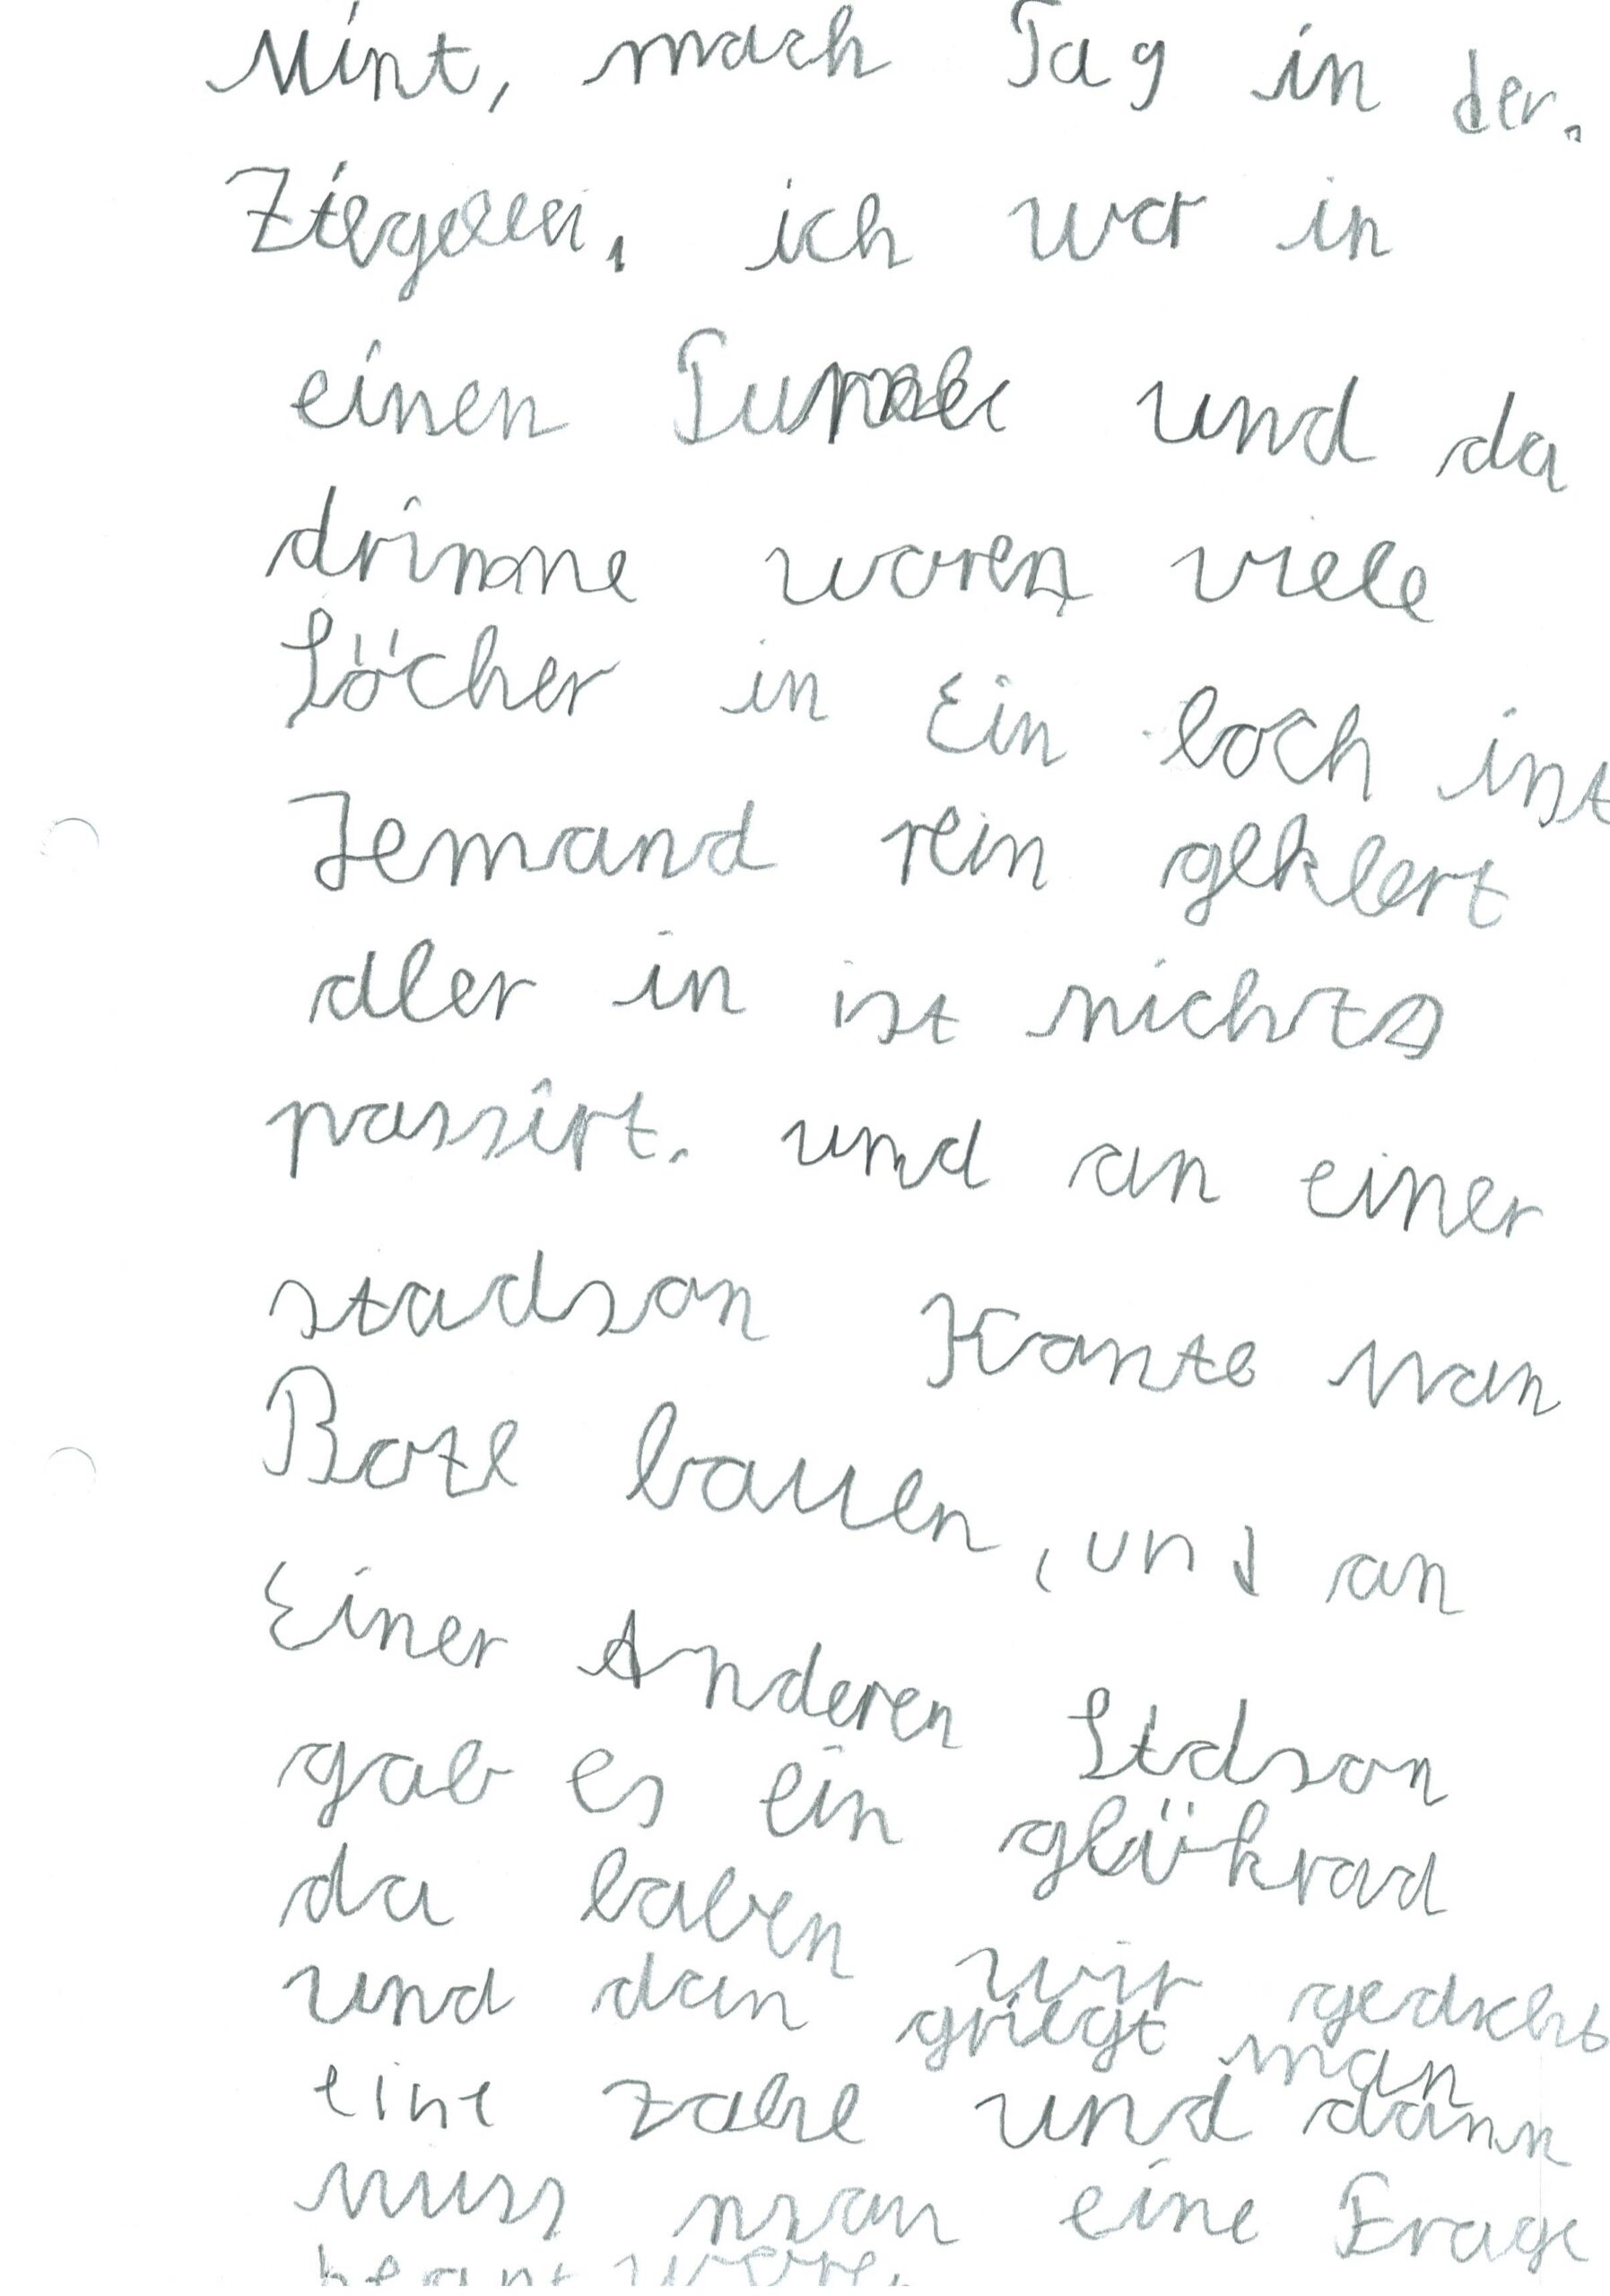 Mint, mach Tag in der.
Ziegelei, ich war in
einen Tunnel und da
drinne waren viele
Löcher in Ein loch ist
Jemand rein geklert
aber in ist nichts
passirt. und an einer
stadson Kante man
Bote bauen, und an
Einer Anderen Stdson
gab es ein glükrad
da haben wir gedreht
und dan griegt man
eine zahl und dann
muss man eine Frage